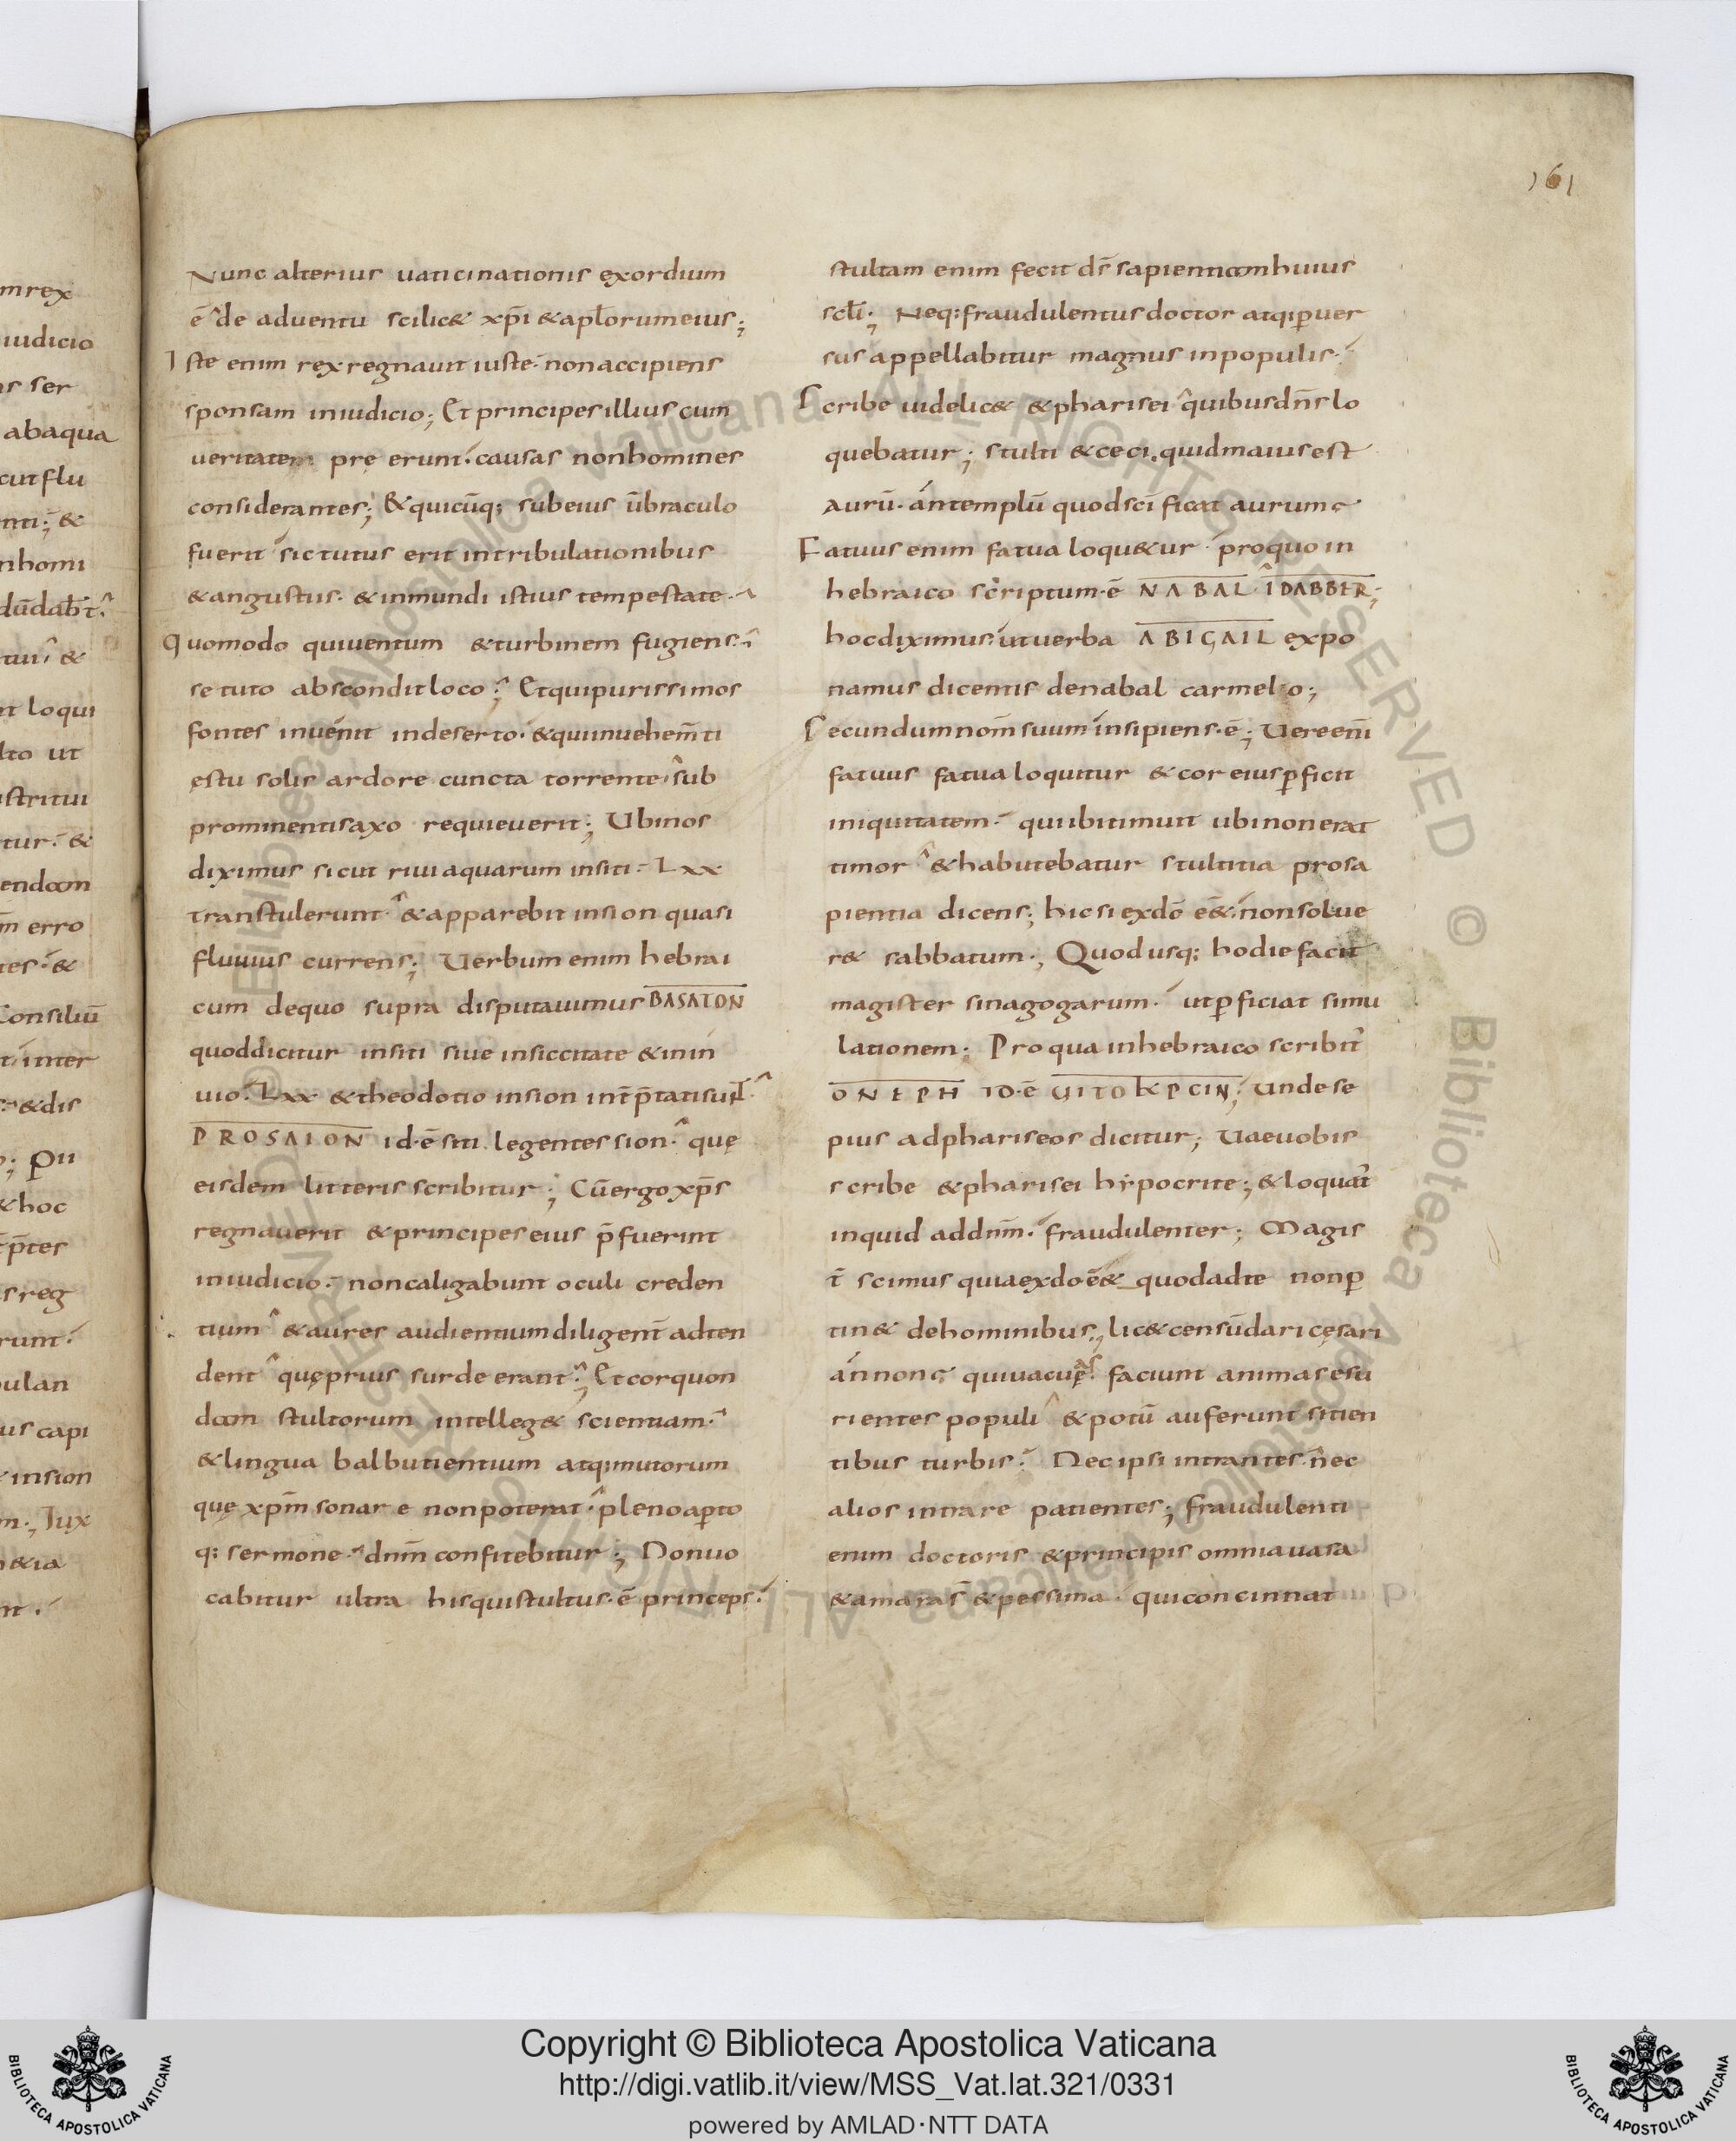 161
Nunc alterius uaticinationis exordium
ē de aduentu scilic& xp̄i & apl̄orum eius;
Iste enim rex regnauit iuste· non accipiens
sponsam in iudicio; Et principes illius cum
ueritatem pre erunt· causas non homines
considerantes; & quicūq; sub eius ūbraculo
fuerit sic tutus erit in tribulationibus
& angustus· & in mundi istius tempestate·
Quomodo qui uentum & turbinem fugiens·
se tuto abscondit loco; Et qui purissimos
fontes inuenit in deserto· & qui in uehem̄ti
ęstu solis ardore cuncta torrente sub
prominenti saxo requieuerit; Ubi nos
diximus sicut riui aquarum in siti· Lxx
transtulerunt· & apparebit in sion quasi
fluuius currens; Uerbum enim hebrai
cum de quo supra disputauimus BASAION
quod dicitur in siti siue in siccitate & in in
uio· Lxx & theodotio in sion int̄p̄tati sun̄t
PROSAION id· ē siti legentes sion· quę
eisdem litteris scribitur; Cū ergo xp̄s
regnauerit & principes eius p̄fuerint
in iudicio· non caligabunt oculi creden
tium & aures audientium diligent̄ adten
dent quę prius surde erant; Et cor quon
dam stultorum intelleg& scientiam·
& lingua balbutientium atq; mutorum
quę xpm̄ sonare non poterat· pleno ap̄to
q; sermone dnm̄ confitebitur; Non uo
cabitur ultra his qui stultus· ē princeps·
stultam enim fecit ds̄ sapientiam huius
scl̄i; Neq; fraudulentus doctor atq; p̄uer
sus appellabitur magnus in populis·
Scribe uidelic& & pharisei quibus dn̄s lo
quebatur; stulti & ceci. quid maius est
aurū· an templū quod sc̄ificat aurum
Fatuus enim fatua loqu&ur· pro quo in
hebraico scriptum· ē NABAL IDABBER;
hoc diximus· ut uerba ABIGAIL expo
namus dicentis de nabal carmelo;
Secundum nom̄ suum insipiens· ē; Uere eni̅
fatuus fatua loquitur & cor eius p̄ficit
iniquitatem· qui ibi timuit ubi non erat
timor & habutebatur stultitia pro sa
pientia dicens; hic si ex dō e&· non solue
r& sabbatum; Quod usq; hodie facit
magister sinagogarum· ut p̄ficiat simu
lationem; Pro qua in hebraico scribit̄
ONEPH ID· ē
Unde se
pius ad phariseos dicitur; Uae uobis
scribe & pharisei hypocrite; & loquat̄
inquid ad dnm̄· fraudulenter; Magis
t̄ scimus quia ex do ē& quod ad te non p̄
tin& de hominibus; lic& censū dari cęsari
an non· qui uacuęas faciunt animas esu
rientes populi & potū auferunt sitien
tibus turbis· Nec ipsi intrantes· nec
alios intrare patientes; fraudulenti
enim doctoris & principis omnia uasa
& amaras̄ & pessima· qui concinnat
Copyright © Biblioteca Apostolica Vaticana
http://digi.vatlib.it/view/MSS_Vat.lat.321/0331
powered by AMLAD·NTT DATA
BIBLIOTECA APOSTOLICA VATICANA
BIBLIOTECA APOSTOLICA VATICANA